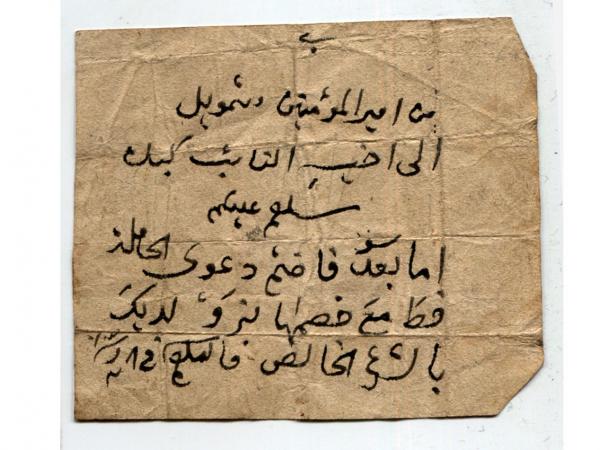 من امير المؤمنين شمويل
الى اخيه النائب كبك
سلام عليكم
اما بعد فاختم دعوى الحاملة
خط مع خصمها بنزو لديك
بالشرع الخالص والسلام